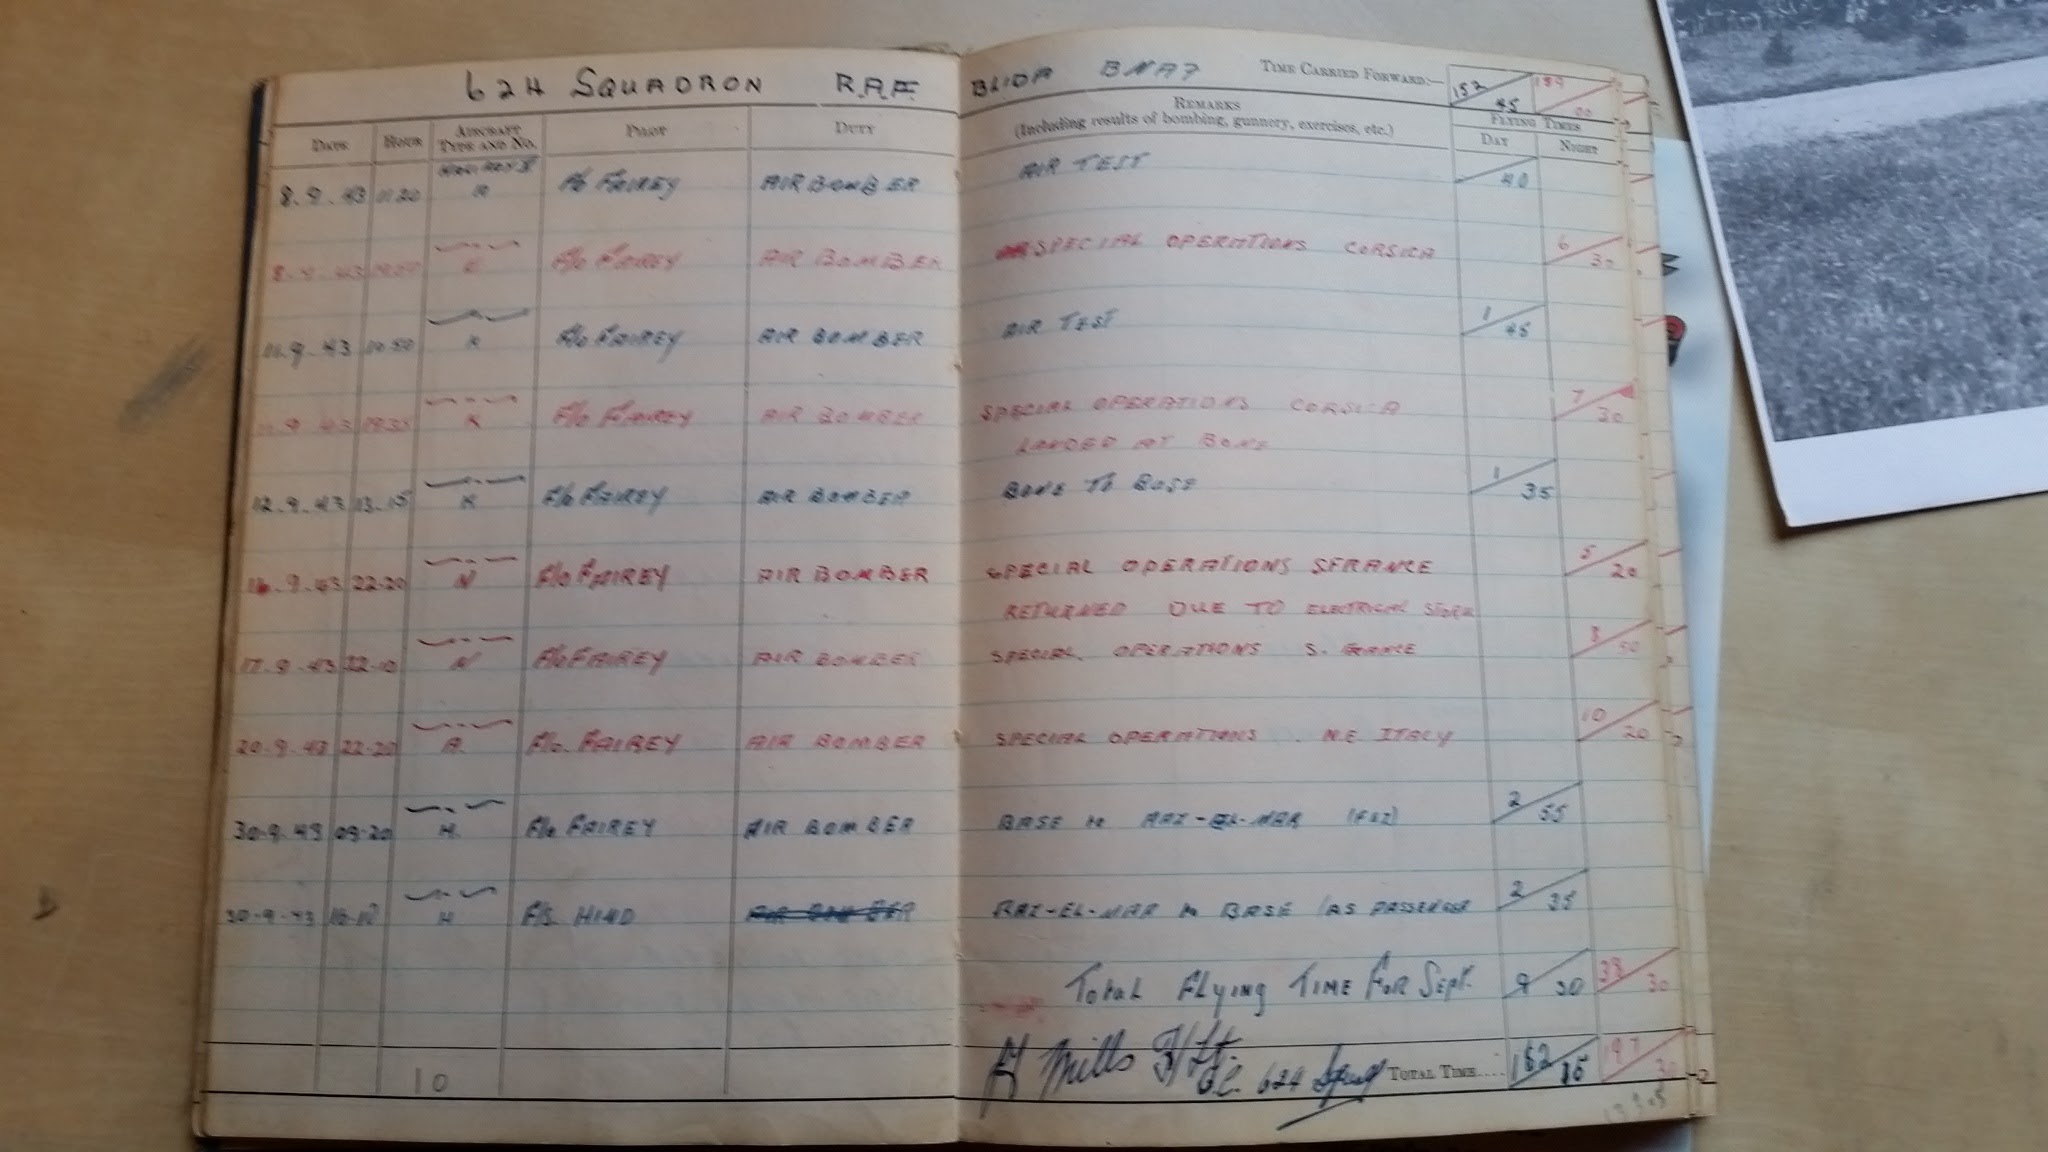 624 SQUADRON RAF BLIDA BNAF TIME CARRIED FORWARD:— 45
DATE HOUR AIRCRAFT TYPE AND NO. PILOT DUTY REMARKS (Including results of bombing, gunnery, exercises, etc.) FLYING TIMES DAY NIGHT
8.9.43 11.20 F/o FAIREY AIR BOMBER AIR TEST 40
8.9.43 F/o FAIREY AIR BOMBER SPECIAL OPERATIONS CORSICA 6/30
11.9.43 K F/o FAIREY AIR BOMBER AIR TEST 1/45
11.9.43 19.35 K F/o FAIREY AIR BOMBER SPECIAL OPERATIONS CORSICA 7/30
LANDED AT BONE
12.9.43 13.15 K F/o FAIREY AIR BOMBER BONE TO BASE 1/35
16.9.43 22.20 N F/o FAIREY AIR BOMBER SPECIAL OPERATIONS S FRANCE 5/20
RETURNED DUE TO ELECTRICAL STORM
17.9.43 22.10 N F/o FAIREY AIR BOMBER SPECIAL OPERATIONS S. FRANCE 50
20.9.43 22.20 A. F/o. FAIREY AIR BOMBER SPECIAL OPERATIONS N.E. ITALY 10/20
30.9.43 09.20 H. F/o FAIREY AIR BOMBER BASE to RAZ-EL-MAR (FEZ) 2/55
30.9.43 H F/S. HIND RAZ-EL-MAR to BASE (AS PASSENGER 2/35
TOTAL FLYING TIME FOR SEPT. 30 38/30
Mills F/Lt.
10 O.C. 624 Squad TOTAL TIME....